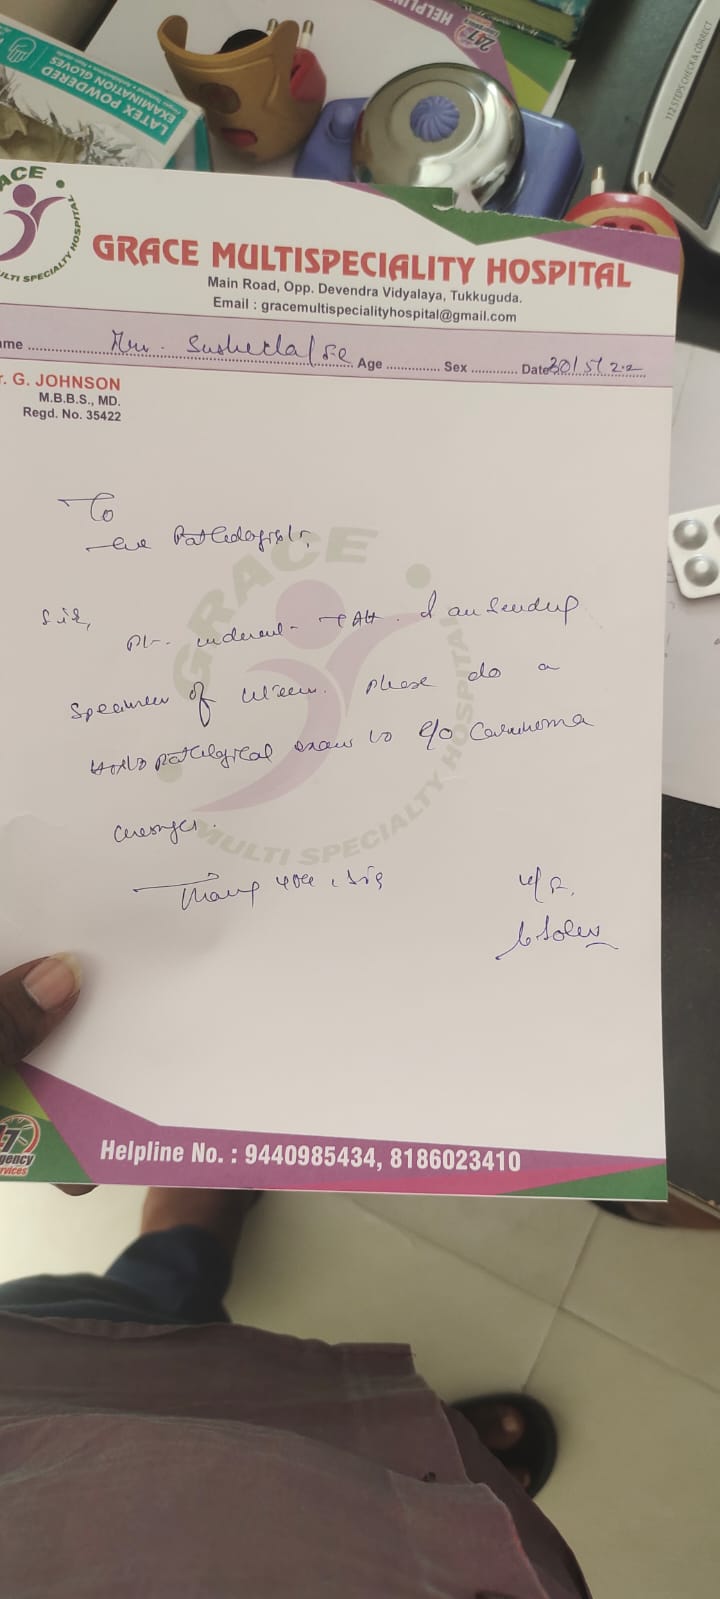 HELPLIN
24/7
LATEX POWDERED
EXAMINATION GLOVES
112 STEPS CHECK & CORRECT
ACE
MULTI SPECIALITY HOSPITAL
GRACE MULTISPECIALITY HOSPITAL
Main Road, Opp. Devendra Vidyalaya, Tukkuguda.
Email : gracemultispecialityhospital@gmail.com
ame Age Sex Date 30/5/22
r. G. JOHNSON
M.B.B.S., MD.
Regd. No. 35422
To
the Pathologist,
Sir,
Pt. underwent TAH. I am sending
Specimen of uterus. please do a
Histopathological exam to R/O Carcinoma
changes.
Thank you, Sir
GRACE
MULTI SPECIALITY HOSPITAL
7
gency
rvices
Helpline No. : 9440985434, 8186023410